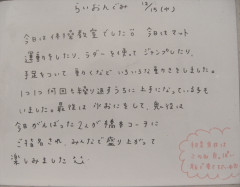 らいおんぐみ 12/17(水)
今日は体操教室でした!! 今日はマット
運動をしたり、ラダーを使ってジャンプしたり、
手足をついて 歩くなどいろいろな動きをしました。
1つ1つ何回も繰り返すうちに上手になっている子も
いました。最後は 列おにをして、鬼役は
今日がんばった2人が 橋本コーチに
ご指名され、みんなで盛り上がって
楽しみました